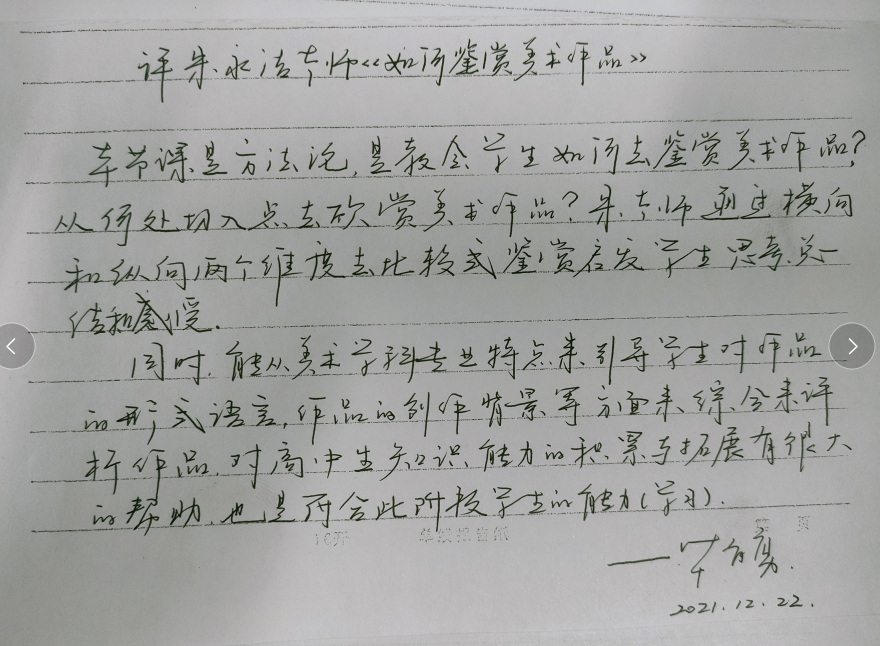 评朱永法老师《如何鉴赏美术作品》
本节课是方法论，是教会学生如何去鉴赏美术作品？
从何处切入点去欣赏美术作品？朱老师通过横向
和纵向两个维度去比较式鉴赏启发学生思考总
结和感受.
同时，能从美术学科专业特点来引导学生对作品
的形式语言，作品的创作背景等方面来综合来评
析作品，对高中生知识、能力的积累与拓展有很大
的帮助，也是符合此阶段学生的能力(学习).
2021.12.22.
16开 单线报告纸 第 页